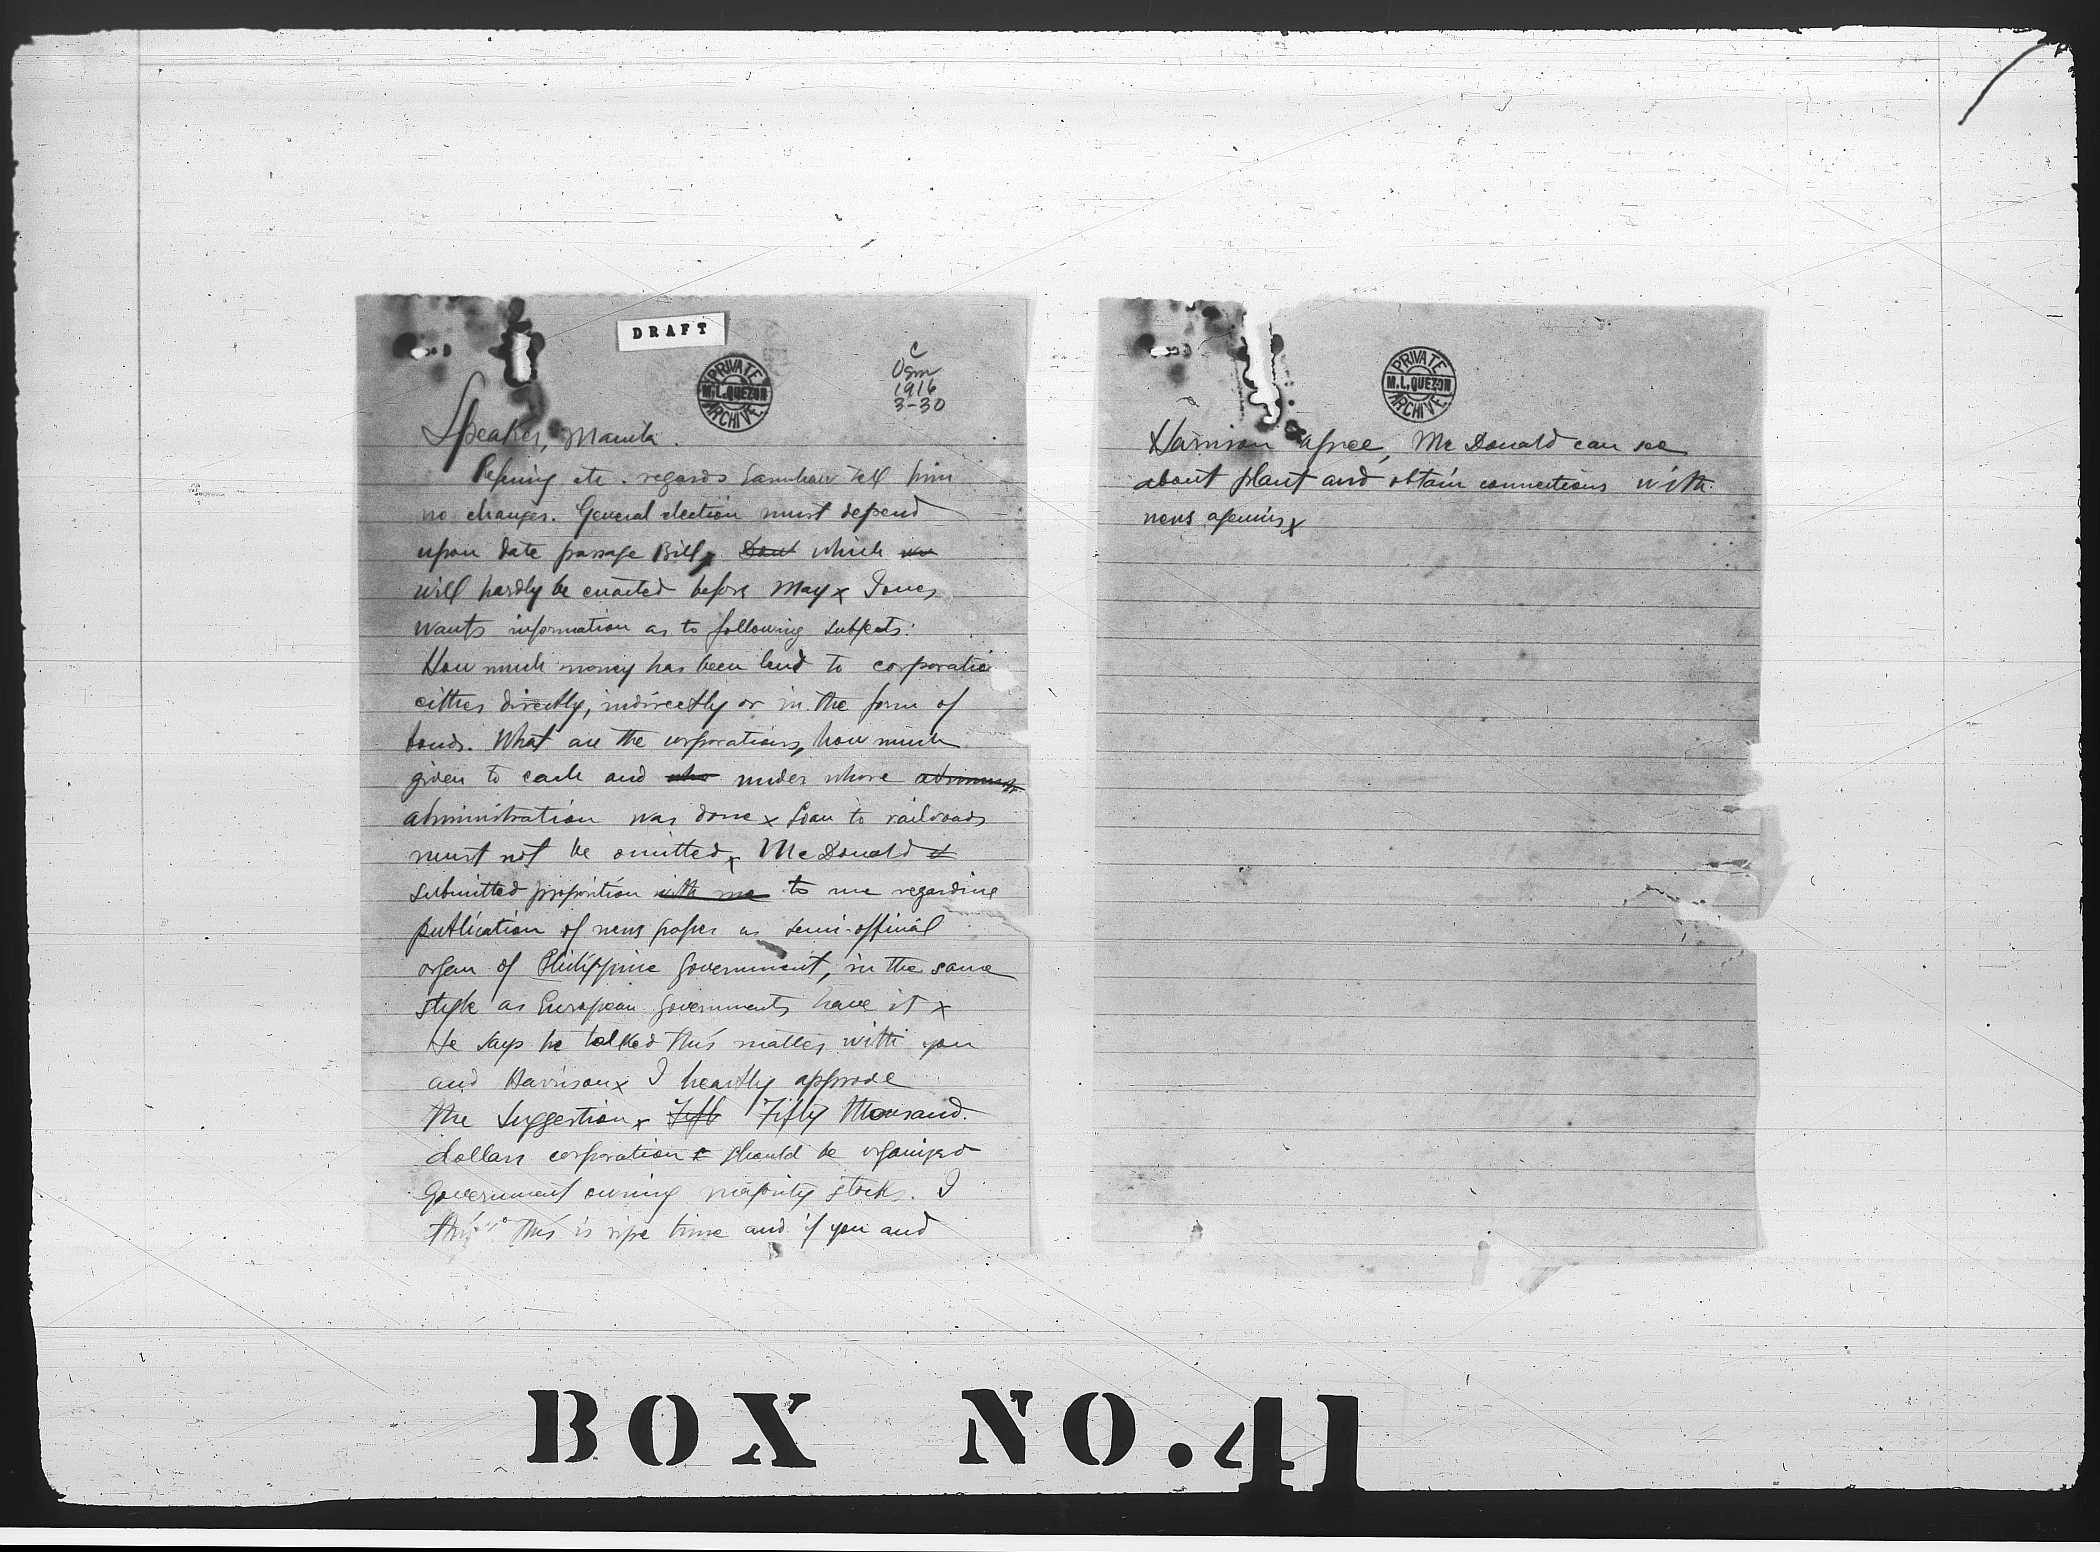 DRAFT
PRIVATE
M.L.QUEZON
ARCHIVE
C
Osm
1916
3-30
Speaker, Manila.
etc. regards tell him
no changes. General election must depend
upon date passage Bill, Dont which
will hardly be enacted before May x Jones
wants information as to following subjects:
How much money has been lend to corporatio
either directly, indirectly or in the form of
bonds. What are the corporations, how much
given to each and who under whose administ
administration was done x Loan to railroads
must not be omitted x McDonald
submitted proposition with me to me regarding
publication of news paper as semi-official
organ of Philippine Government, in the same
style as European governments have it x
He says he talked this matter with you
and Harrison x I heartly approve
the suggestion x Fift Fifty thousand
dollars corporation should be organized
Government owning majority stocks. I
think this is ripe time and if you and
PRIVATE
M.L.QUEZON
ARCHIVE
Harrison agree, McDonald can see
about plant and obtain connections with
news agencies x
BOX NO.41